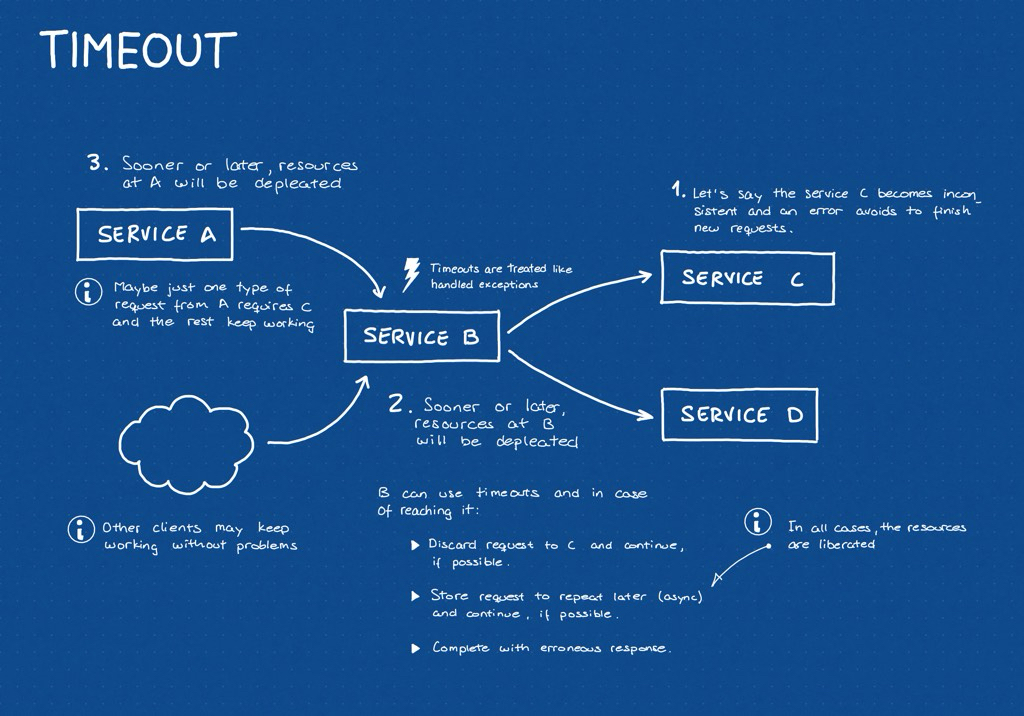 TIMEOUT
3. Sooner or later, resources
at A will be depleated
SERVICE A
Maybe just one type of
request from A requires C
and the rest keep working
Timeouts are treated like
handled exceptions
SERVICE B
1. Let's say the service C becomes incon_
sistent and an error avoids to finish
new requests.
SERVICE C
SERVICE D
2. Sooner or later,
resources at B
will be depleated
Other clients may keep
working without problems
B can use timeouts and in case
of reaching it:
▶ Discard request to C and continue,
if possible.
▶ Store request to repeat later (async)
and continue, if possible.
▶ Complete with erroneous response.
In all cases, the resources
are liberated